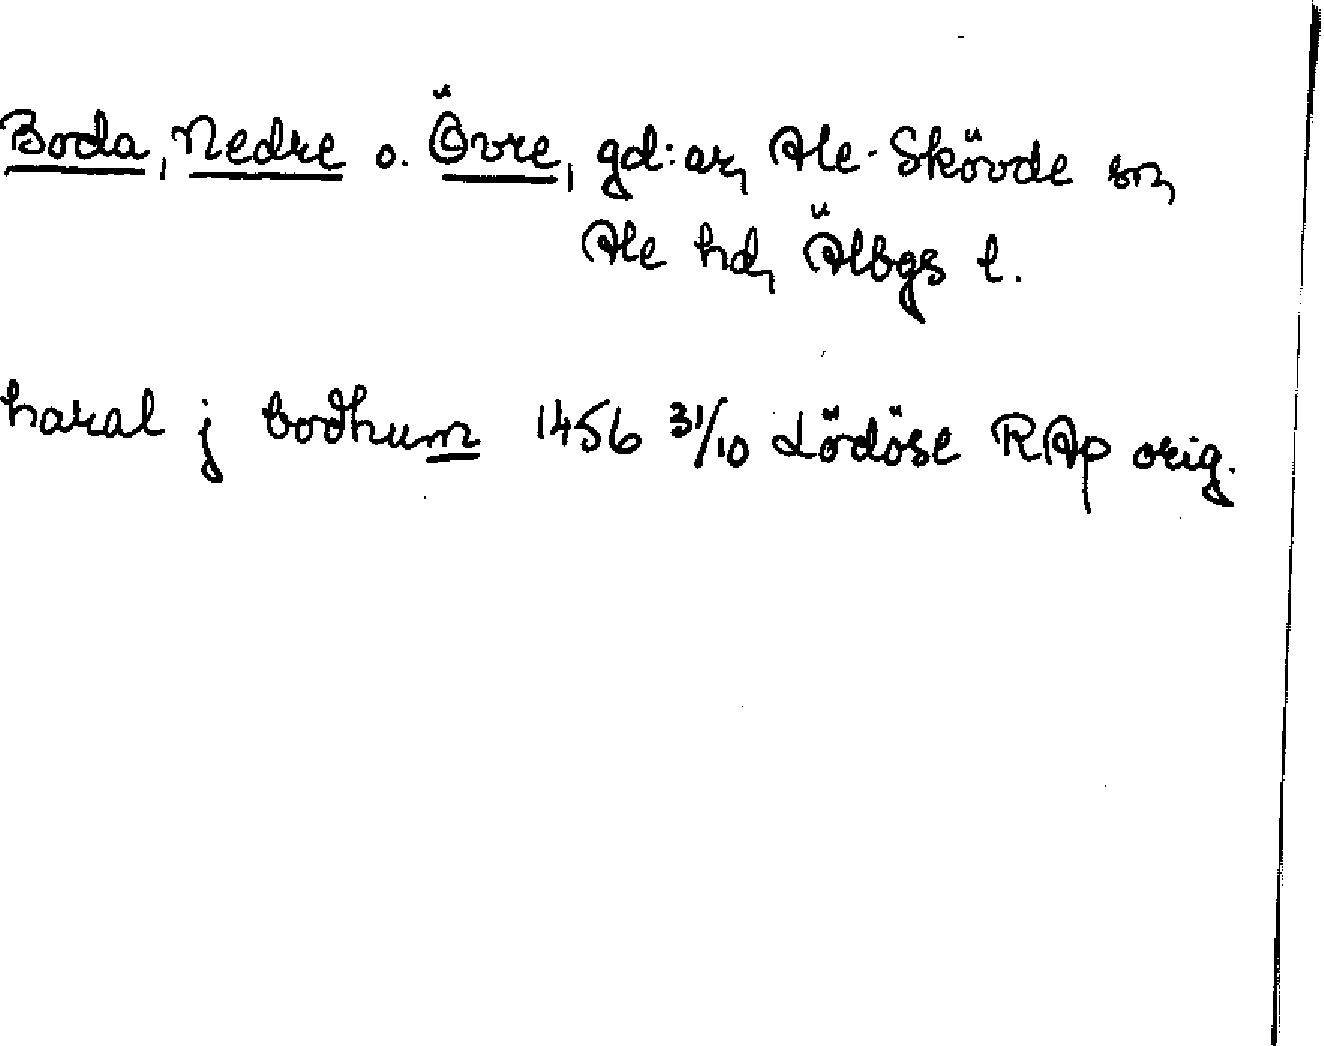 Boda, Nedre o. Övre, gd:ar, Ale-Skövde sn,
Ale hd, Älbgs l.
haral j bodhum 1456 31/10 Lödöse RAp orig.